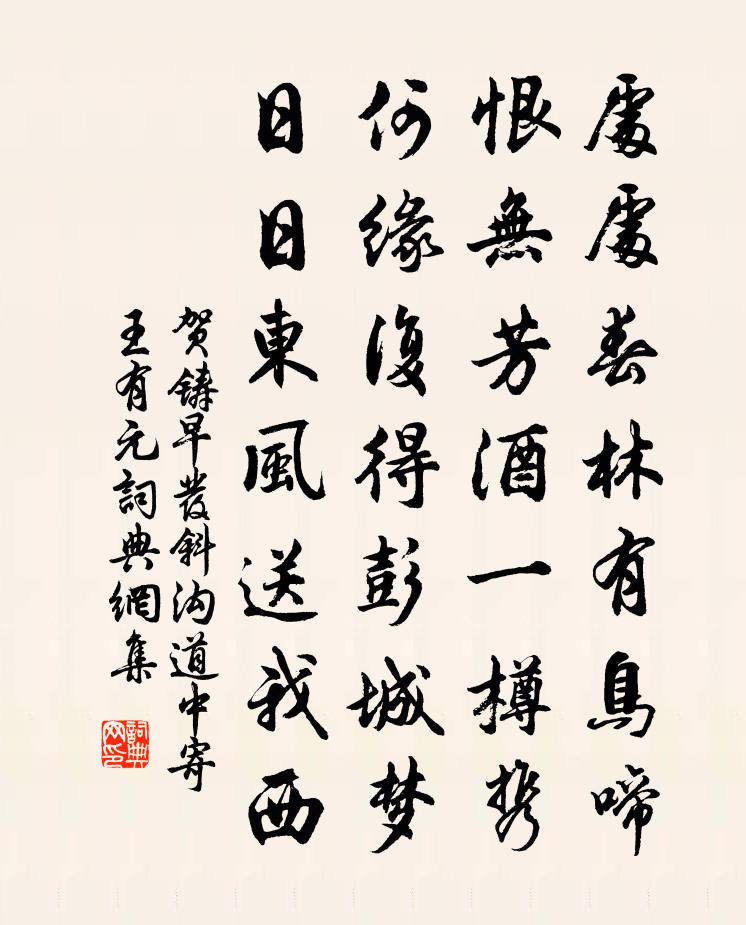 處處春林有鳥啼
恨無芳酒一樽携
何緣復得彭城梦
日日東風送我西
贺鑄早發斜沟道中寄
王有元詞典網集
詞典網印